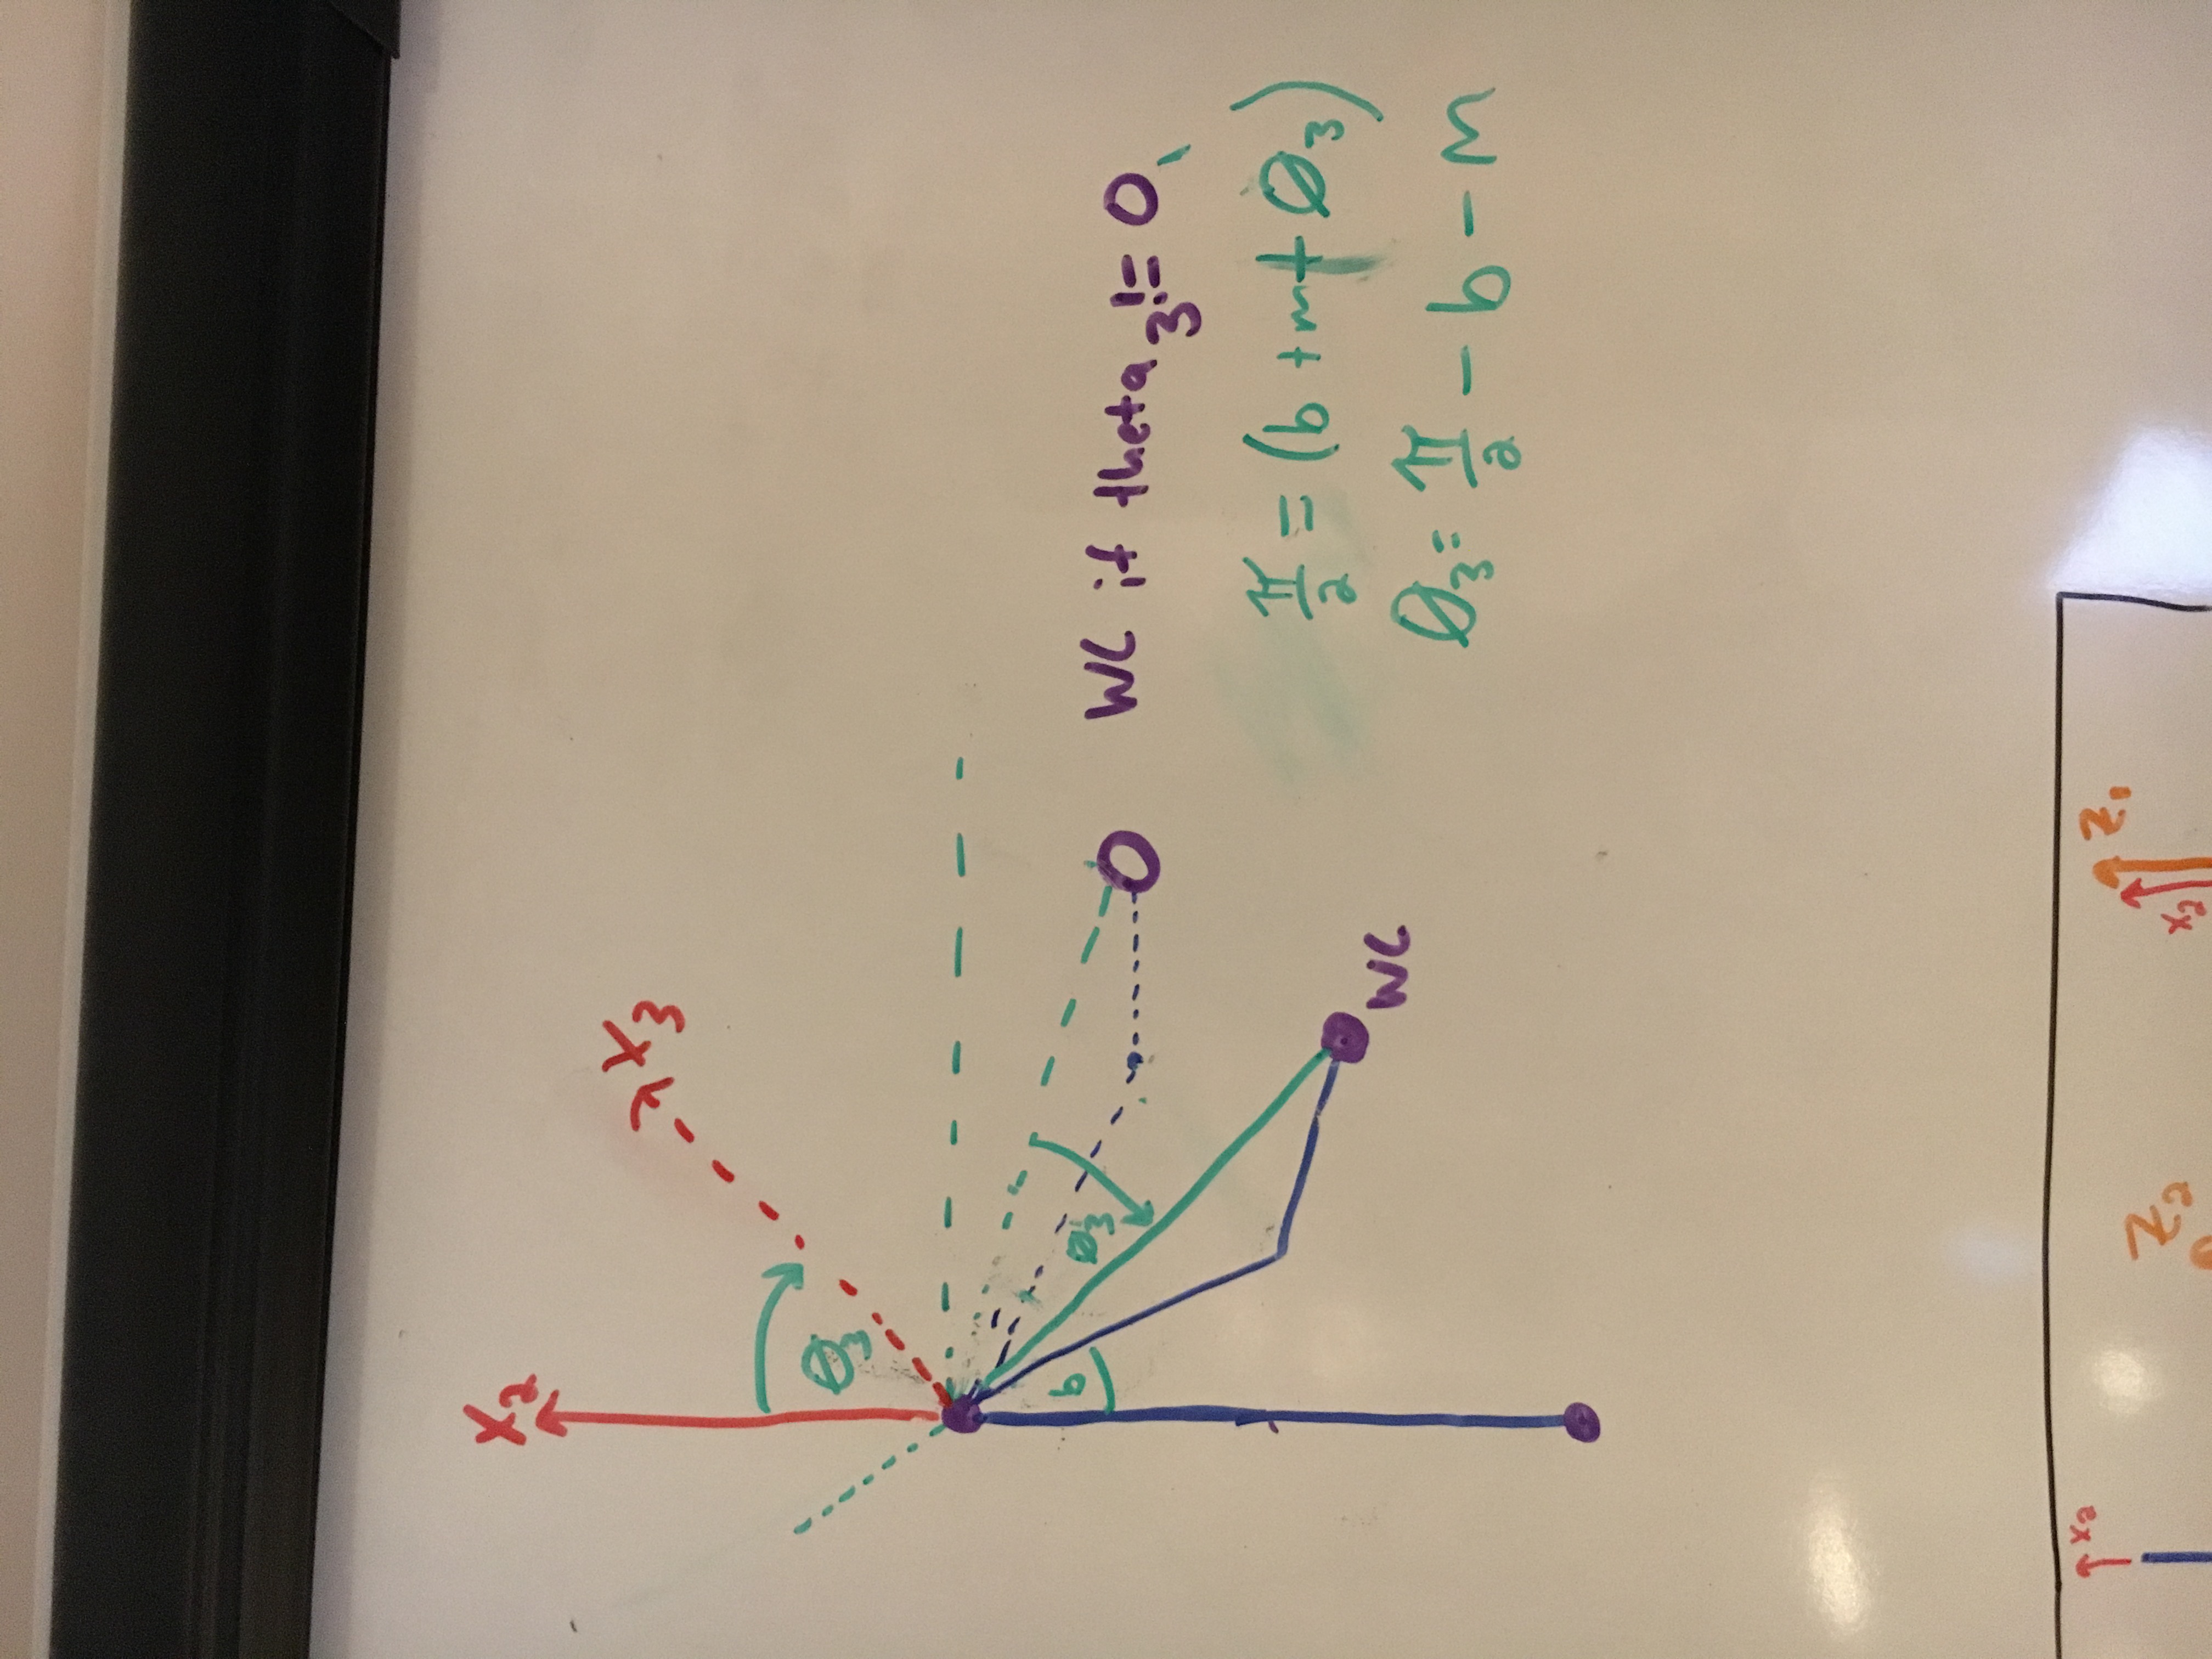 X₂
X₃
θ₃
b
θ₃
WC if theta₃ != 0
WC
π/2 = (b + m + θ₃)
θ₃ = π/2 - b - m
x₂
Z₂
Z₁
x₂